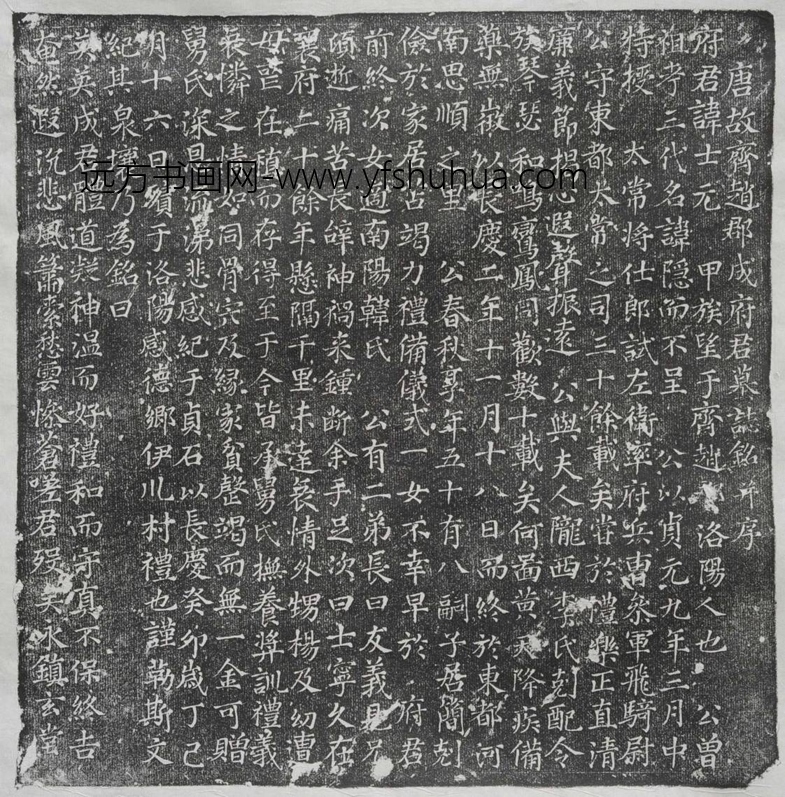 唐故齊趙郡成府君墓誌銘并序
府君諱士元 甲族望于齊趙 洛陽人也 公曾
祖考三代名諱隱而不呈 公以貞元九年三月中
特授 太常將仕郎試左衛率府兵曹參軍飛騎尉
公守東都太常之司三十餘載矣甞於禮樂正直清
廉義節 遐聲振遠 公與夫人隴西李氏 配令
族琴瑟和鳴鸞鳳同歡數十載矣何啚黃天降疾備
藥無徵以長慶二年十一月十八日而終於東都河
南思順之里 公春秋享年五十有八嗣子居簡剋
儉於家居 竭力禮備儀式一女不幸早於 府君
前終次女適南陽韓氏 公有二弟長曰友義見兄
傾逝痛苦長辝神禍来鍾断余手足次曰士寧久在
襄府二十餘年懸隔千里未達哀情外甥楊及幼遭
在 而存得至于今皆承舅氏撫養奬訓禮義
哀憐之情如同骨宍及緣家貧罄竭而無一金可贈
舅氏深 涕悲感紀于貞石以長慶癸卯歲丁巳
月十六日 于洛陽感德鄉伊川村禮也謹勒斯文
紀其泉 乃為銘曰
英英成君體道凝神温而好禮和而守真不保終吉
奄然遐沉悲風蕭索愁雲慘蒼嗟君歿矣永鎮玄堂
远方书画网-www.yfshuhua.com